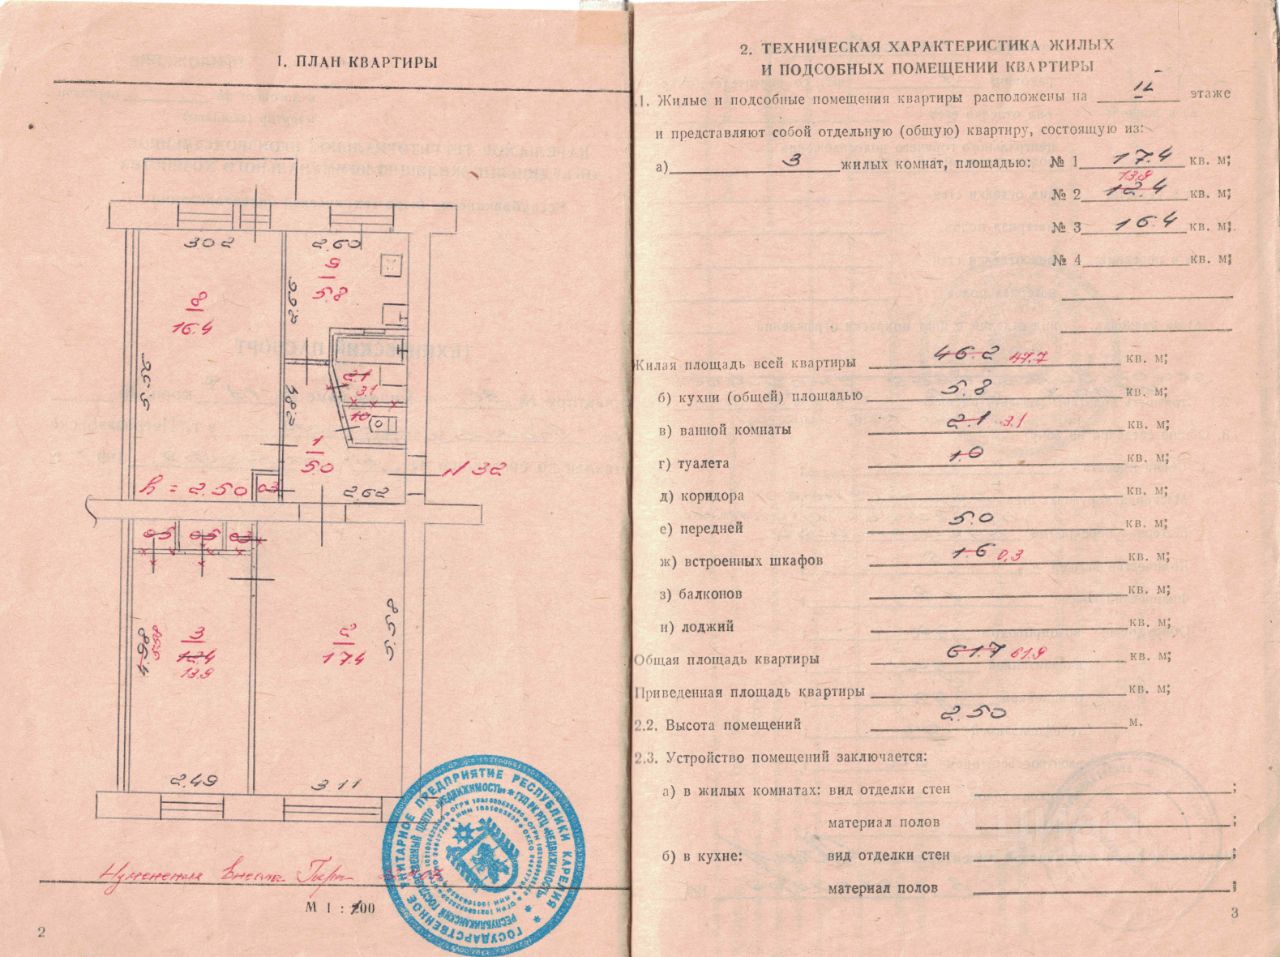 1. ПЛАН КВАРТИРЫ
302
2.60
8
16.4
5
5.8
2.66
5.56
2.1
3.1
1.0
2.84
1
5.0
h = 2.50
0.3
2.62
N 32
0.5
0.5
0.3
4.98
5.58
3
12.4
13.9
2
17.4
5.58
2.49
3.11
Изменения внесла
М 1 : 100
2
ГОСУДАРСТВЕННОЕ УНИТАРНОЕ ПРЕДПРИЯТИЕ РЕСПУБЛИКИ КАРЕЛИЯ
РЕСПУБЛИКАНСКИЙ ГОСУДАРСТВЕННЫЙ ЦЕНТР «НЕДВИЖИМОСТЬ» * ГУП РК РГЦ «НЕДВИЖИМОСТЬ»
2. ТЕХНИЧЕСКАЯ ХАРАКТЕРИСТИКА ЖИЛЫХ
И ПОДСОБНЫХ ПОМЕЩЕНИИ КВАРТИРЫ
.1. Жилые и подсобные помещения квартиры расположены на этаже
и представляют собой отдельную (общую) квартиру, состоящую из:
а) 3 жилых комнат, площадью: № 1 17.4 кв. м;
13.9
№ 2 12.4 кв. м;
№ 3 16.4 кв. м;
№ 4 кв. м;
Жилая площадь всей квартиры 46.2 47.7 кв. м;
б) кухни (общей) площадью 5.8 кв. м;
в) ванной комнаты 2.1 3.1 кв. м;
г) туалета 1.0 кв. м;
д) коридора кв. м;
е) передней 5.0 кв. м;
ж) встроенных шкафов 1.6 0.3 кв. м;
з) балконов кв. м;
и) лоджий кв. м;
Общая площадь квартиры 61.7 61.9 кв. м;
Приведенная площадь квартиры кв. м;
2.2. Высота помещений 2.50 м.
2.3. Устройство помещений заключается:
а) в жилых комнатах: вид отделки стен ;
материал полов ;
б) в кухне: вид отделки стен ;
материал полов ;
3